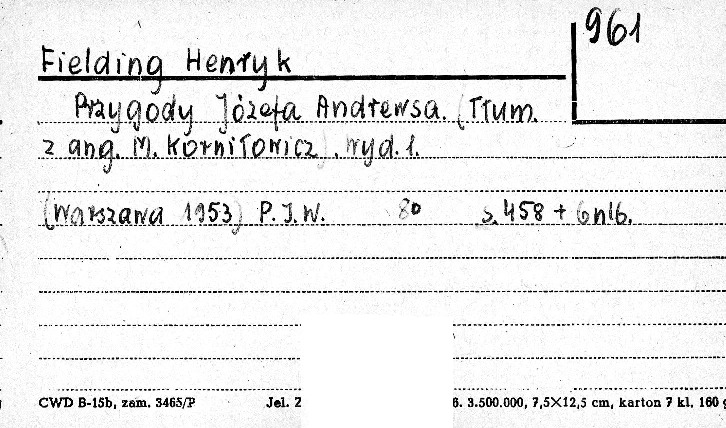 961
Fielding Henryk
Przygody Józefa Andrewsa. (Tłum.
z ang. M. Korniłowicz). wyd. 1.
(Warszawa 1953) P.I.W. 80 s. 458 + 6 nlb.
CWD B-15b, zam. 3465/P Jel. Z 6. 3.500.000, 7,5×12,5 cm, karton 7 kl, 160 g